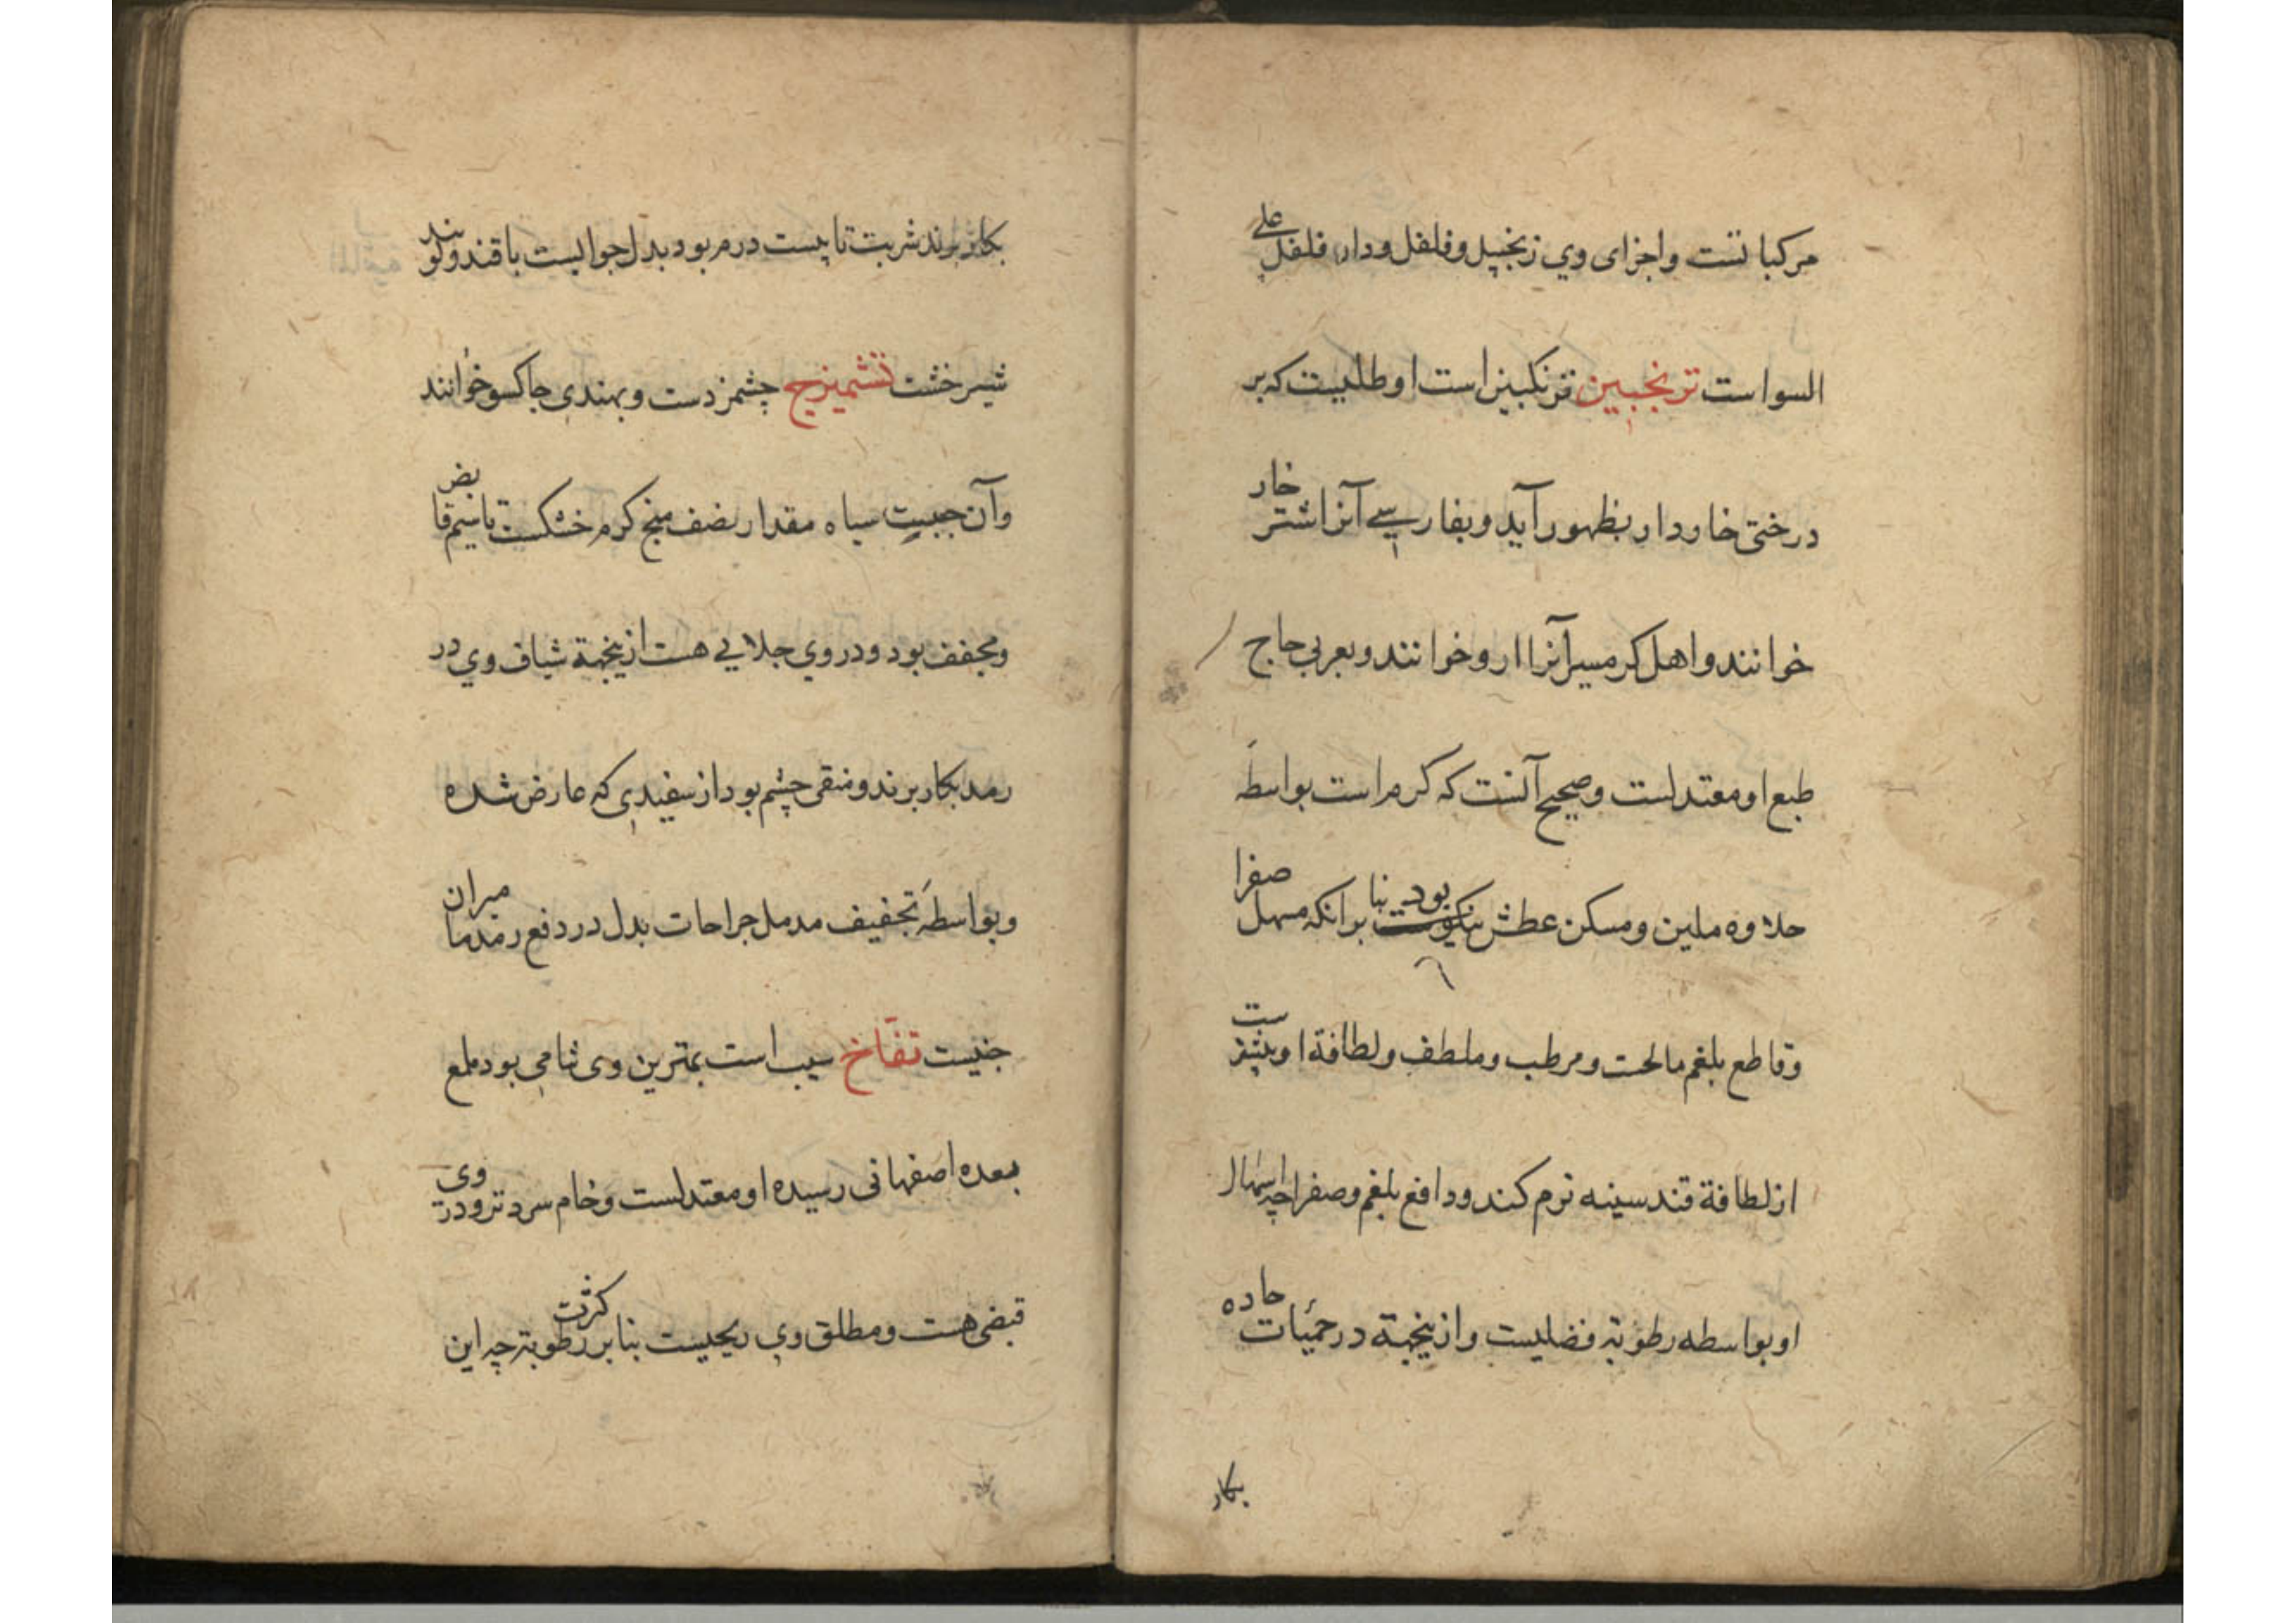 مرکباتست واجزای وي زنجبیل وفلفل ودار فلفل علے
السواست ترنجبین ترنکبین است او طلیست که بر
درختی خاردار بظهور آید وبفارسے آنرا اشتر خار
خوانند واهل کرمسیر آنرا ارو خوانند وبعربی حاج
طبع او معتدلست وصحیح آنست که کرم است بواسطهٔ
حلاوه ملین ومسکن عطش نیکوست بود بنا برانکه مسهل صفرا
وقاطع بلغم مالحست ومرطب وملطف ولطافة او بیشترست
از لطافة قند سینه نرم کند ودافع بلغم وصفرا چه اسهال
او بواسطه رطوبة فضلیست وازینجهة در حمیات حاده
بکار
بکار برند شربت تا بیست درم بود بدل جوالیست با قند وکویند
شیرخشت تشمیزج چشمزدست وبهندی جاکسو خوانند
وآن حبیست سیاه مقدار نصف منج کرم خشکست تا سیم قابض
ومجفف بود ودر وي جلایي هست ازینجهة شیاف وي در
رمد بکار برند ومنقی چشم بود از سفیدی که عارض شده
وبواسطهٔ تجفیف مدمل جراحات بدل در دفع رمد مامیران
جنیست تفّاخ سیب است بهترین وی شامی بود ملمع
بعده اصفهانی رسیده او معتدلست وخام سردتر ودر وی
قبضی هست ومطلق وي ریحیست بنا بر کثرت رطوبة چه این